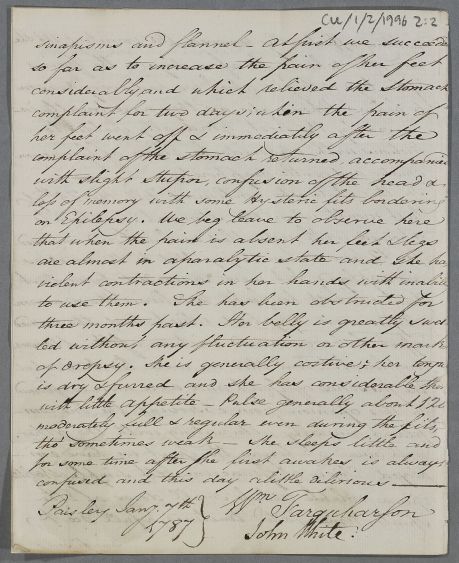 CU/1/2/1996 2:2
sinapisms and flannel – At first we succeede
so far as to increase the pain of her feet
considerably and which relieved the Stomach
complaint for two days; when the pain of
her feet went off & immediately after the
complaint of the stomach returned accompanied
with slight stupor, confusion of the head &
loss of memory with some Hysteric fits bordering
on Epilepsy. We beg leave to observe here
that when the pain is absent her feet & legs
are almost in a paralytic state and She has
violent contractions in her hands with inabili
to use them. She has been obstructed for
three months past. Her belly is greatly swel
led without any fluctuation or other mark
of dropsy. She is generally costive; her tongue
is dry & furred and she has considerable thir
with little appetite – Pulse generally about 120
moderately full & regular even during the fits,
tho' sometimes weak – She sleeps little and
for some time after She first awakes is always
confused and this day a little delirious –
Paisley Jany. 7th
1787
Wm Farquharson
John White.